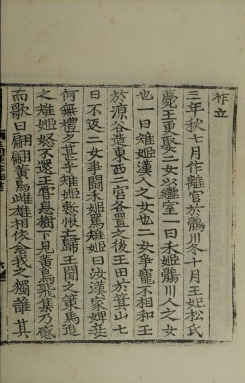 作立
三年秋七月作離宮於鶻川冬十月王妃松氏
薨王更娶二女以繼室一曰禾姬鶻川人之女
也一曰雉姬漢人之女也二女爭寵不相和王
於涼谷造東西二宮各置之後王田於箕山七
日不返二女爭鬪禾姬罵雉姬曰汝漢家婢妾
何無禮之甚乎雉姬慙恨亡歸王聞之策馬追
之雉姬怒不還王嘗息樹下見黃鳥飛集乃感
而歌曰翩翩黃鳥雌雄相依念我之獨誰其